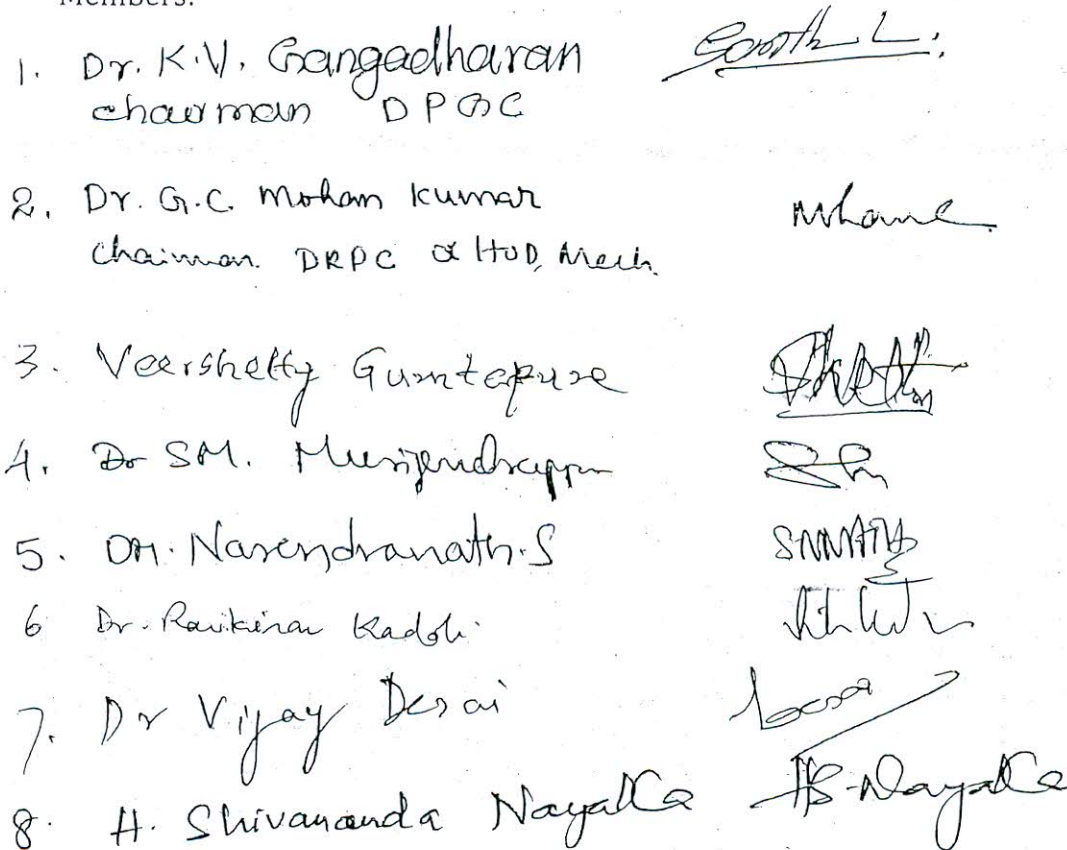 Members:
1. Dr. K.V. Gangadharan
chairman DPGC
2. Dr. G.C. Mohan Kumar
Chairman. DRPC & HOD, Mech.
3. Veershetty Gumtapure
4. Dr SM. Murigendrappa
5. Dr. Narendranath.S
6 Dr. Ravikiran Kadoli.
7. Dr Vijay Desai
8. H. Shivananda Nayaka H.S.Nayaka